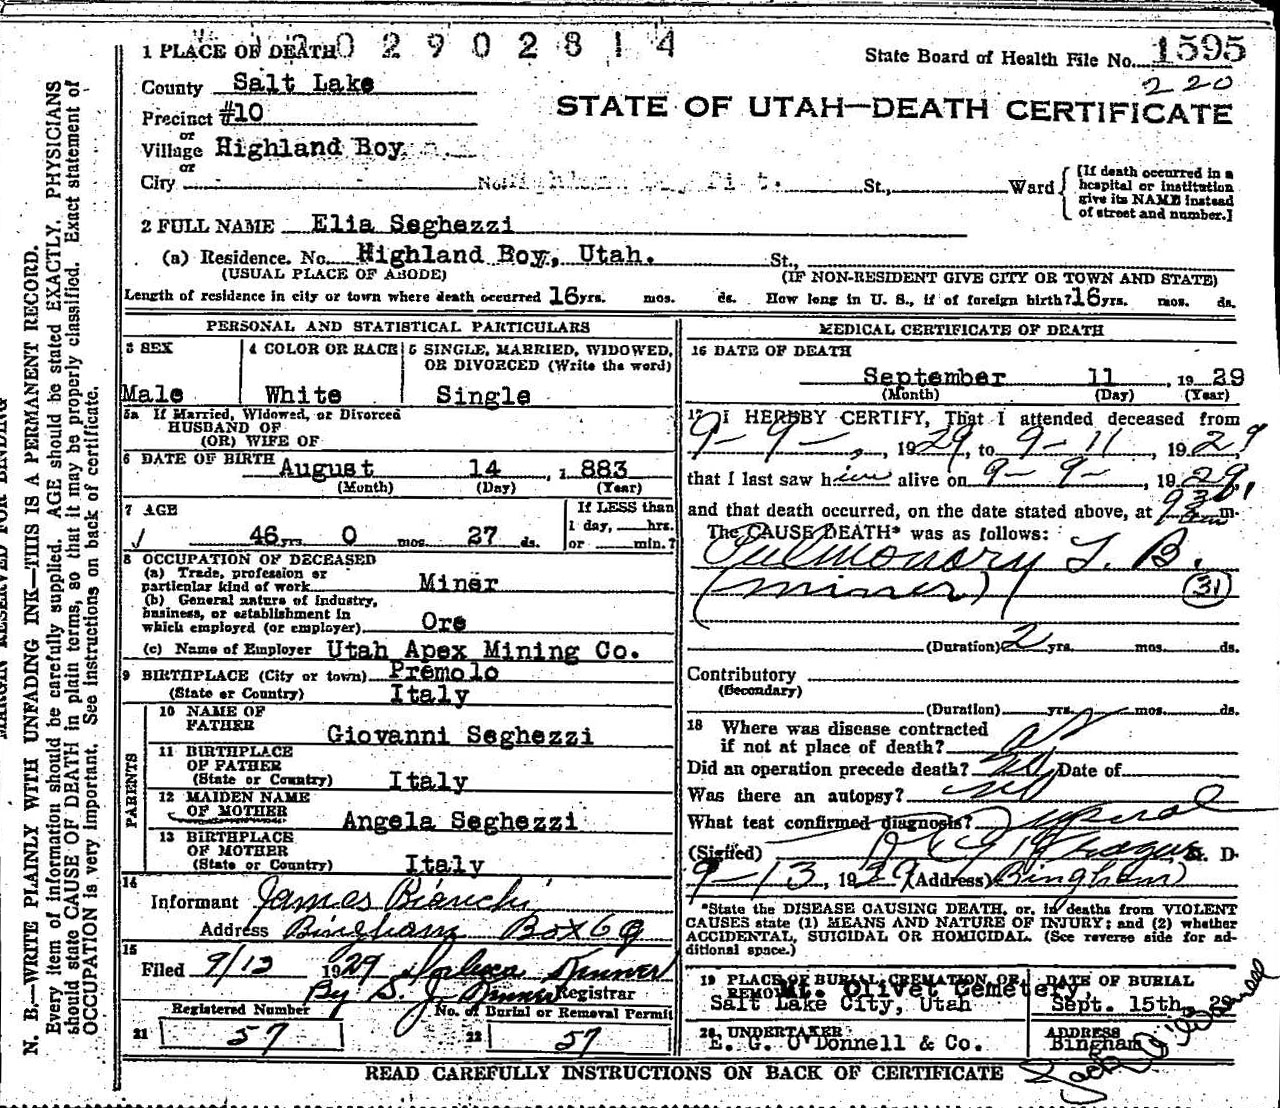 1 PLACE OF DEATH 2 0 2 9 0 2 8 1 4
State Board of Health File No. 1595
220
County Salt Lake
STATE OF UTAH—DEATH CERTIFICATE
Precinct #10
or
Village Highland Boy
or
City No. St., Ward
[If death occurred in a
hospital or institution
give its NAME instead
of street and number.]
2 FULL NAME Elia Seghezzi
(a) Residence. No. Highland Boy, Utah. St.,
(USUAL PLACE OF ABODE) (IF NON-RESIDENT GIVE CITY OR TOWN AND STATE)
Length of residence in city or town where death occurred 16 yrs. mos. ds. How long in U. S., if of foreign birth? 16 yrs. mos. ds.
PERSONAL AND STATISTICAL PARTICULARS
3 SEX
Male
4 COLOR OR RACE
White
5 SINGLE, MARRIED, WIDOWED,
OR DIVORCED (Write the word)
Single
5a If Married, Widowed, or Divorced
HUSBAND OF
(OR) WIFE OF
6 DATE OF BIRTH August 14, 1883
(Month) (Day) (Year)
7 AGE
46 yrs. 0 mos. 27 ds.
If LESS than
1 day, hrs.
or min.?
8 OCCUPATION OF DECEASED
(a) Trade, profession or
particular kind of work Miner
(b) General nature of industry,
business, or establishment in
which employed (or employer) Ore
(c) Name of Employer Utah Apex Mining Co.
9 BIRTHPLACE (City or town) Premolo
(State or Country) Italy
PARENTS
10 NAME OF
FATHER Giovanni Seghezzi
11 BIRTHPLACE
OF FATHER
(State or Country) Italy
12 MAIDEN NAME
OF MOTHER Angela Seghezzi
13 BIRTHPLACE
OF MOTHER
(State or Country) Italy
14
Informant James Bianchi
Address Bingham Box 69
15
Filed 9/13 1929
By S. J. Registrar
Registered Number No. of Burial or Removal Permit
21 57 22 57
MEDICAL CERTIFICATE OF DEATH
16 DATE OF DEATH
September 11, 1929
(Month) (Day) (Year)
17 I HEREBY CERTIFY, That I attended deceased from
9-9-, 1929, to 9-11, 1929,
that I last saw him alive on 9-9-, 1929,
and that death occurred, on the date stated above, at 9 30 am m.
The CAUSE DEATH* was as follows:
Pulmonary T. B.
(miner) 31
(Duration) 2 yrs. mos. ds.
Contributory
(Secondary)
(Duration) yrs. mos. ds.
18 Where was disease contracted
if not at place of death?
Did an operation precede death? no Date of
Was there an autopsy? no
What test confirmed diagnosis?
(Signed) M. D.
9-13, 1929 (Address) Bingham
*State the DISEASE CAUSING DEATH, or, in deaths from VIOLENT
CAUSES state (1) MEANS AND NATURE OF INJURY; and (2) whether
ACCIDENTAL, SUICIDAL OR HOMICIDAL. (See reverse side for ad-
ditional space.)
19 PLACE OF BURIAL, CREMATION, OR
REMOVAL Mt. Olivet Cemetery,
Salt Lake City, Utah
DATE OF BURIAL
Sept. 15th, 29
20 UNDERTAKER
E. G. O'Donnell & Co.
ADDRESS
Bingham
READ CAREFULLY INSTRUCTIONS ON BACK OF CERTIFICATE
MARGIN RESERVED FOR BINDING
N. B.—WRITE PLAINLY WITH UNFADING INK—THIS IS A PERMANENT RECORD.
Every item of information should be carefully supplied. AGE should be stated EXACTLY. PHYSICIANS
should state CAUSE OF DEATH in plain terms, so that it may be properly classified. Exact statement of
OCCUPATION is very important. See instructions on back of certificate.